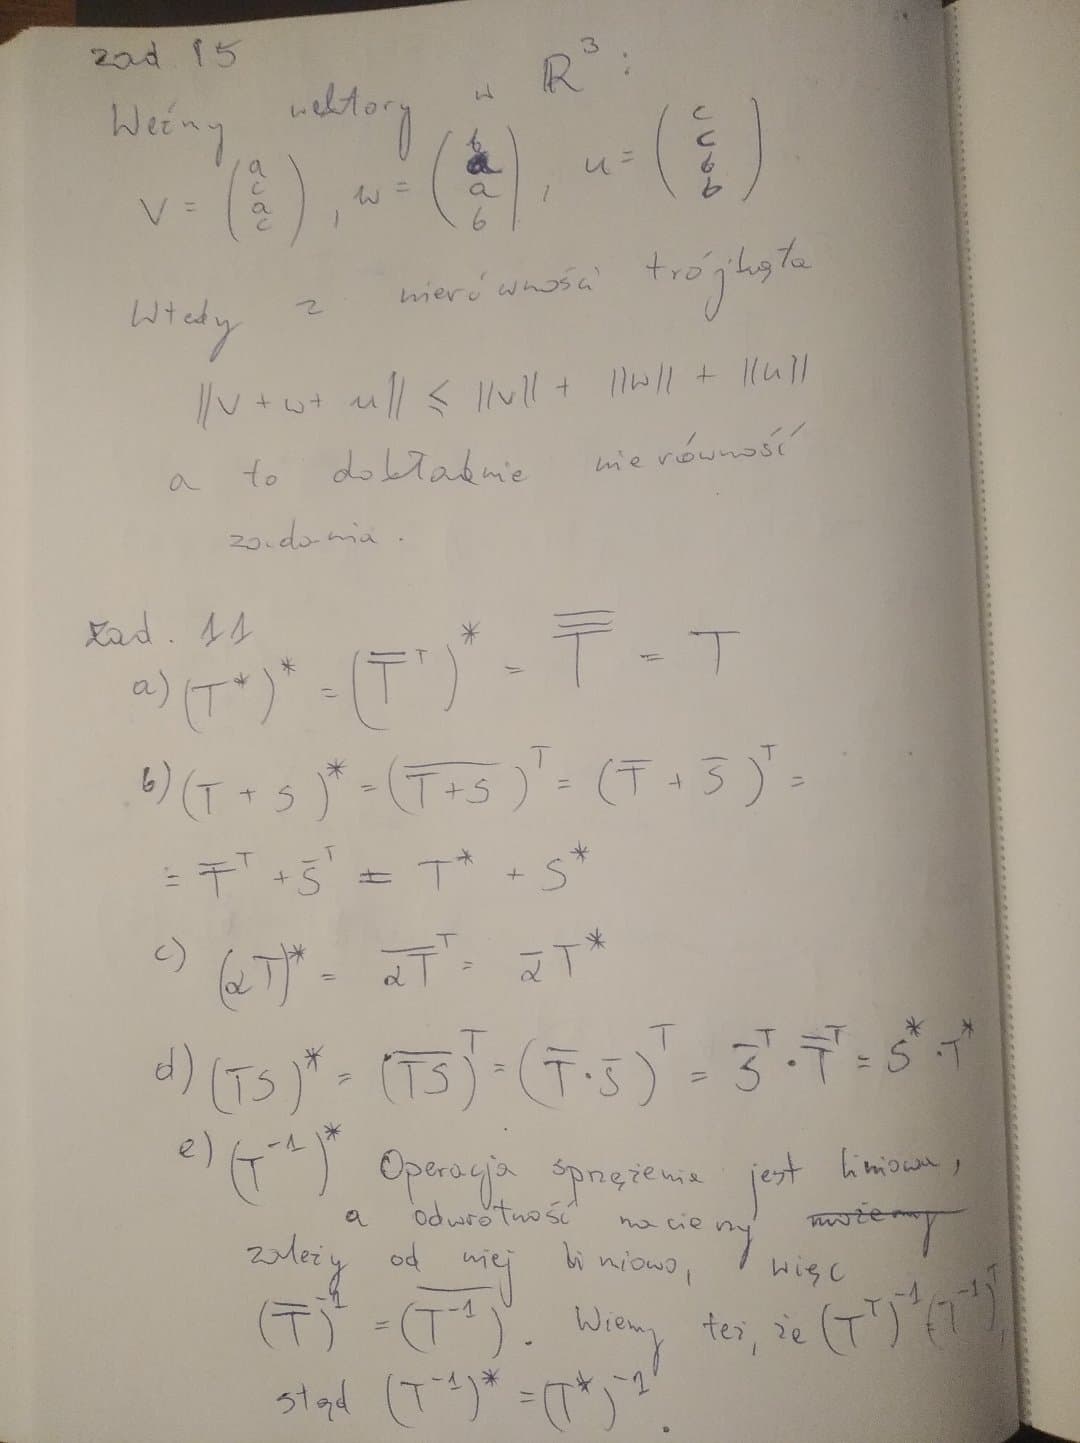 zad. 15
Weźmy wektory w ℝ³:
v = (a c a c), w = (b a a b), u = (c c b b)
Wtedy z nierówności trójkąta
||v + w + u|| ≤ ||v|| + ||w|| + ||u||
a to dokładnie nierówność
zadania.
Zad. 11
a) (T*)* = (T̅ᵀ)* = T̿ = T
b) (T + S)* = (\overline{T+S})ᵀ = (T̅ + S̅)ᵀ =
= T̅ᵀ + S̅ᵀ = T* + S*
c) (αT)* = \overline{αT}ᵀ = α̅T*
d) (TS)* = (\overline{TS})ᵀ = (T̅·S̅)ᵀ = S̅ᵀ·T̅ᵀ = S*·T*
e) (T⁻¹)* Operacja sprzężenia jest liniowa,
a odwrotność macierzy możemy
zależy od niej liniowo, więc
(T̅)⁻¹ = (\overline{T⁻¹}). Wiemy też, że (Tᵀ)⁻¹ = (T⁻¹)ᵀ,
stąd (T⁻¹)* = (T*)⁻¹.